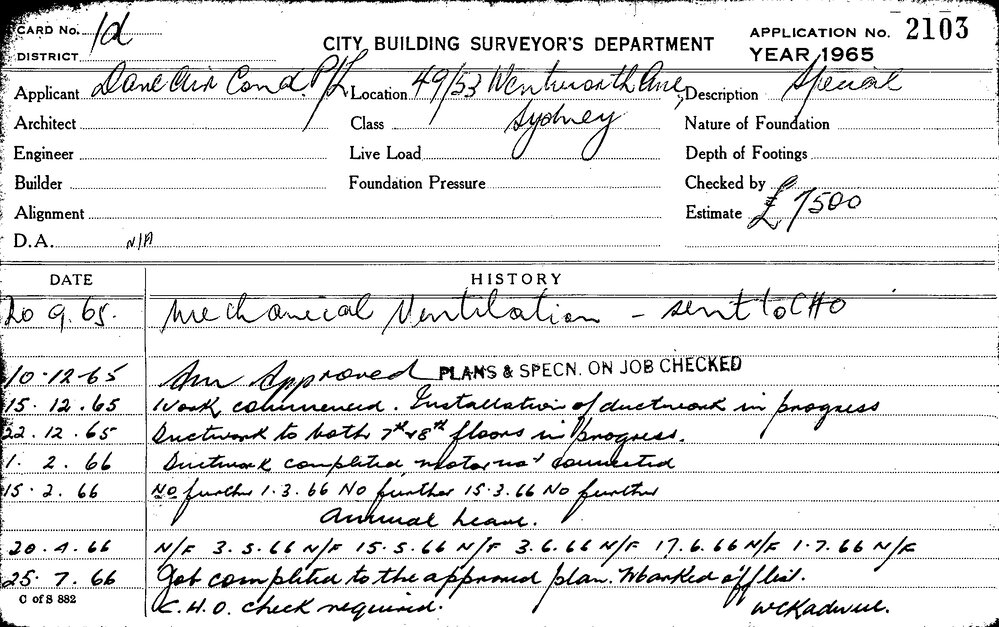 CARD No. 1d
DISTRICT
CITY BUILDING SURVEYOR'S DEPARTMENT
APPLICATION No. 2103
YEAR 1965
Applicant Dane Air Cond. P/L Location 49/53 Wentworth Ave, Description Special
Architect Class Sydney Nature of Foundation
Engineer Live Load Depth of Footings
Builder Foundation Pressure Checked by
Alignment Estimate £7500
D.A. N/A
DATE HISTORY
20 9.65. Mechanical Ventilation - sent to CHO
10-12-65 Approved PLANS & SPECN. ON JOB CHECKED
15.12.65 Work commenced. Installation of ductwork in progress
22.12.65 Ductwork to both 7th & 8th floors in progress.
1.2.66 Ductwork completed, motor not connected
15.2.66 No further 1.3.66 No further 15.3.66 No further
Annual Leave.
20.4.66 N/F 3.5.66 N/F 15.5.66 N/F 3.6.66 N/F 17.6.66 N/F 1.7.66 N/F
25.7.66 Job completed to the approved plan. Marked off list.
C of S 882
C.H.O. check required.